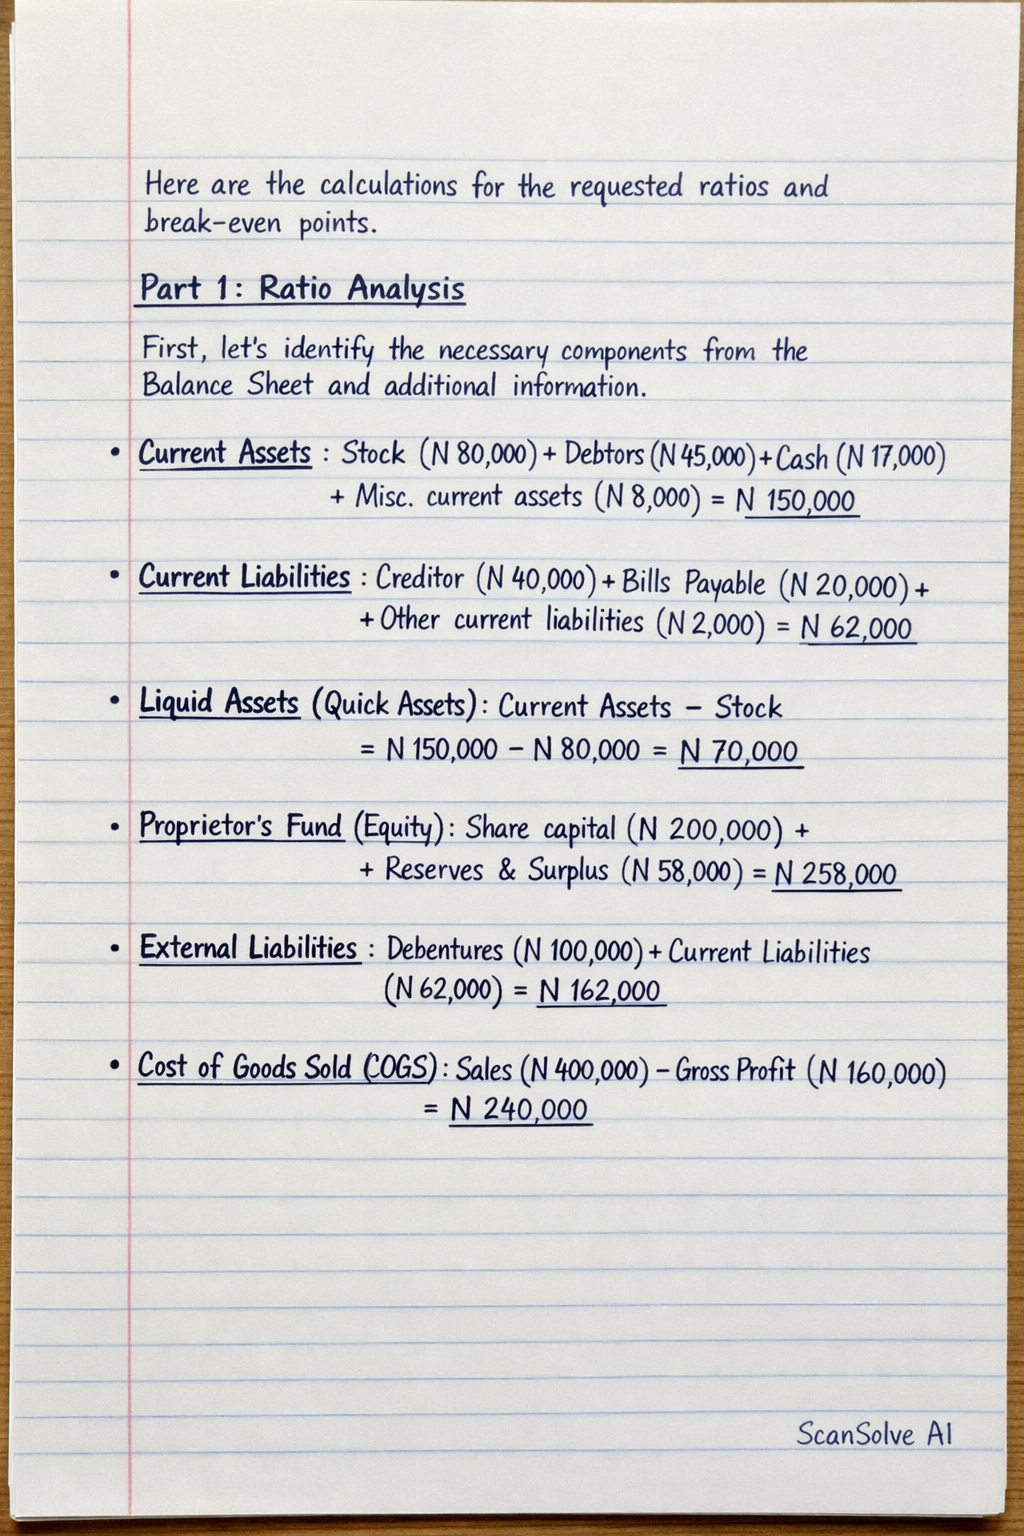 Here are the calculations for the requested ratios and
break-even points.
Part 1: Ratio Analysis
First, let's identify the necessary components from the
Balance Sheet and additional information.
• Current Assets : Stock (N 80,000) + Debtors (N 45,000) + Cash (N 17,000)
+ Misc. current assets (N 8,000) = N 150,000
• Current Liabilities : Creditor (N 40,000) + Bills Payable (N 20,000) +
+ Other current liabilities (N 2,000) = N 62,000
• Liquid Assets (Quick Assets): Current Assets – Stock
= N 150,000 – N 80,000 = N 70,000
• Proprietor's Fund (Equity): Share capital (N 200,000) +
+ Reserves & Surplus (N 58,000) = N 258,000
• External Liabilities : Debentures (N 100,000) + Current Liabilities
(N 62,000) = N 162,000
• Cost of Goods Sold (COGS): Sales (N 400,000) – Gross Profit (N 160,000)
= N 240,000
ScanSolve AI